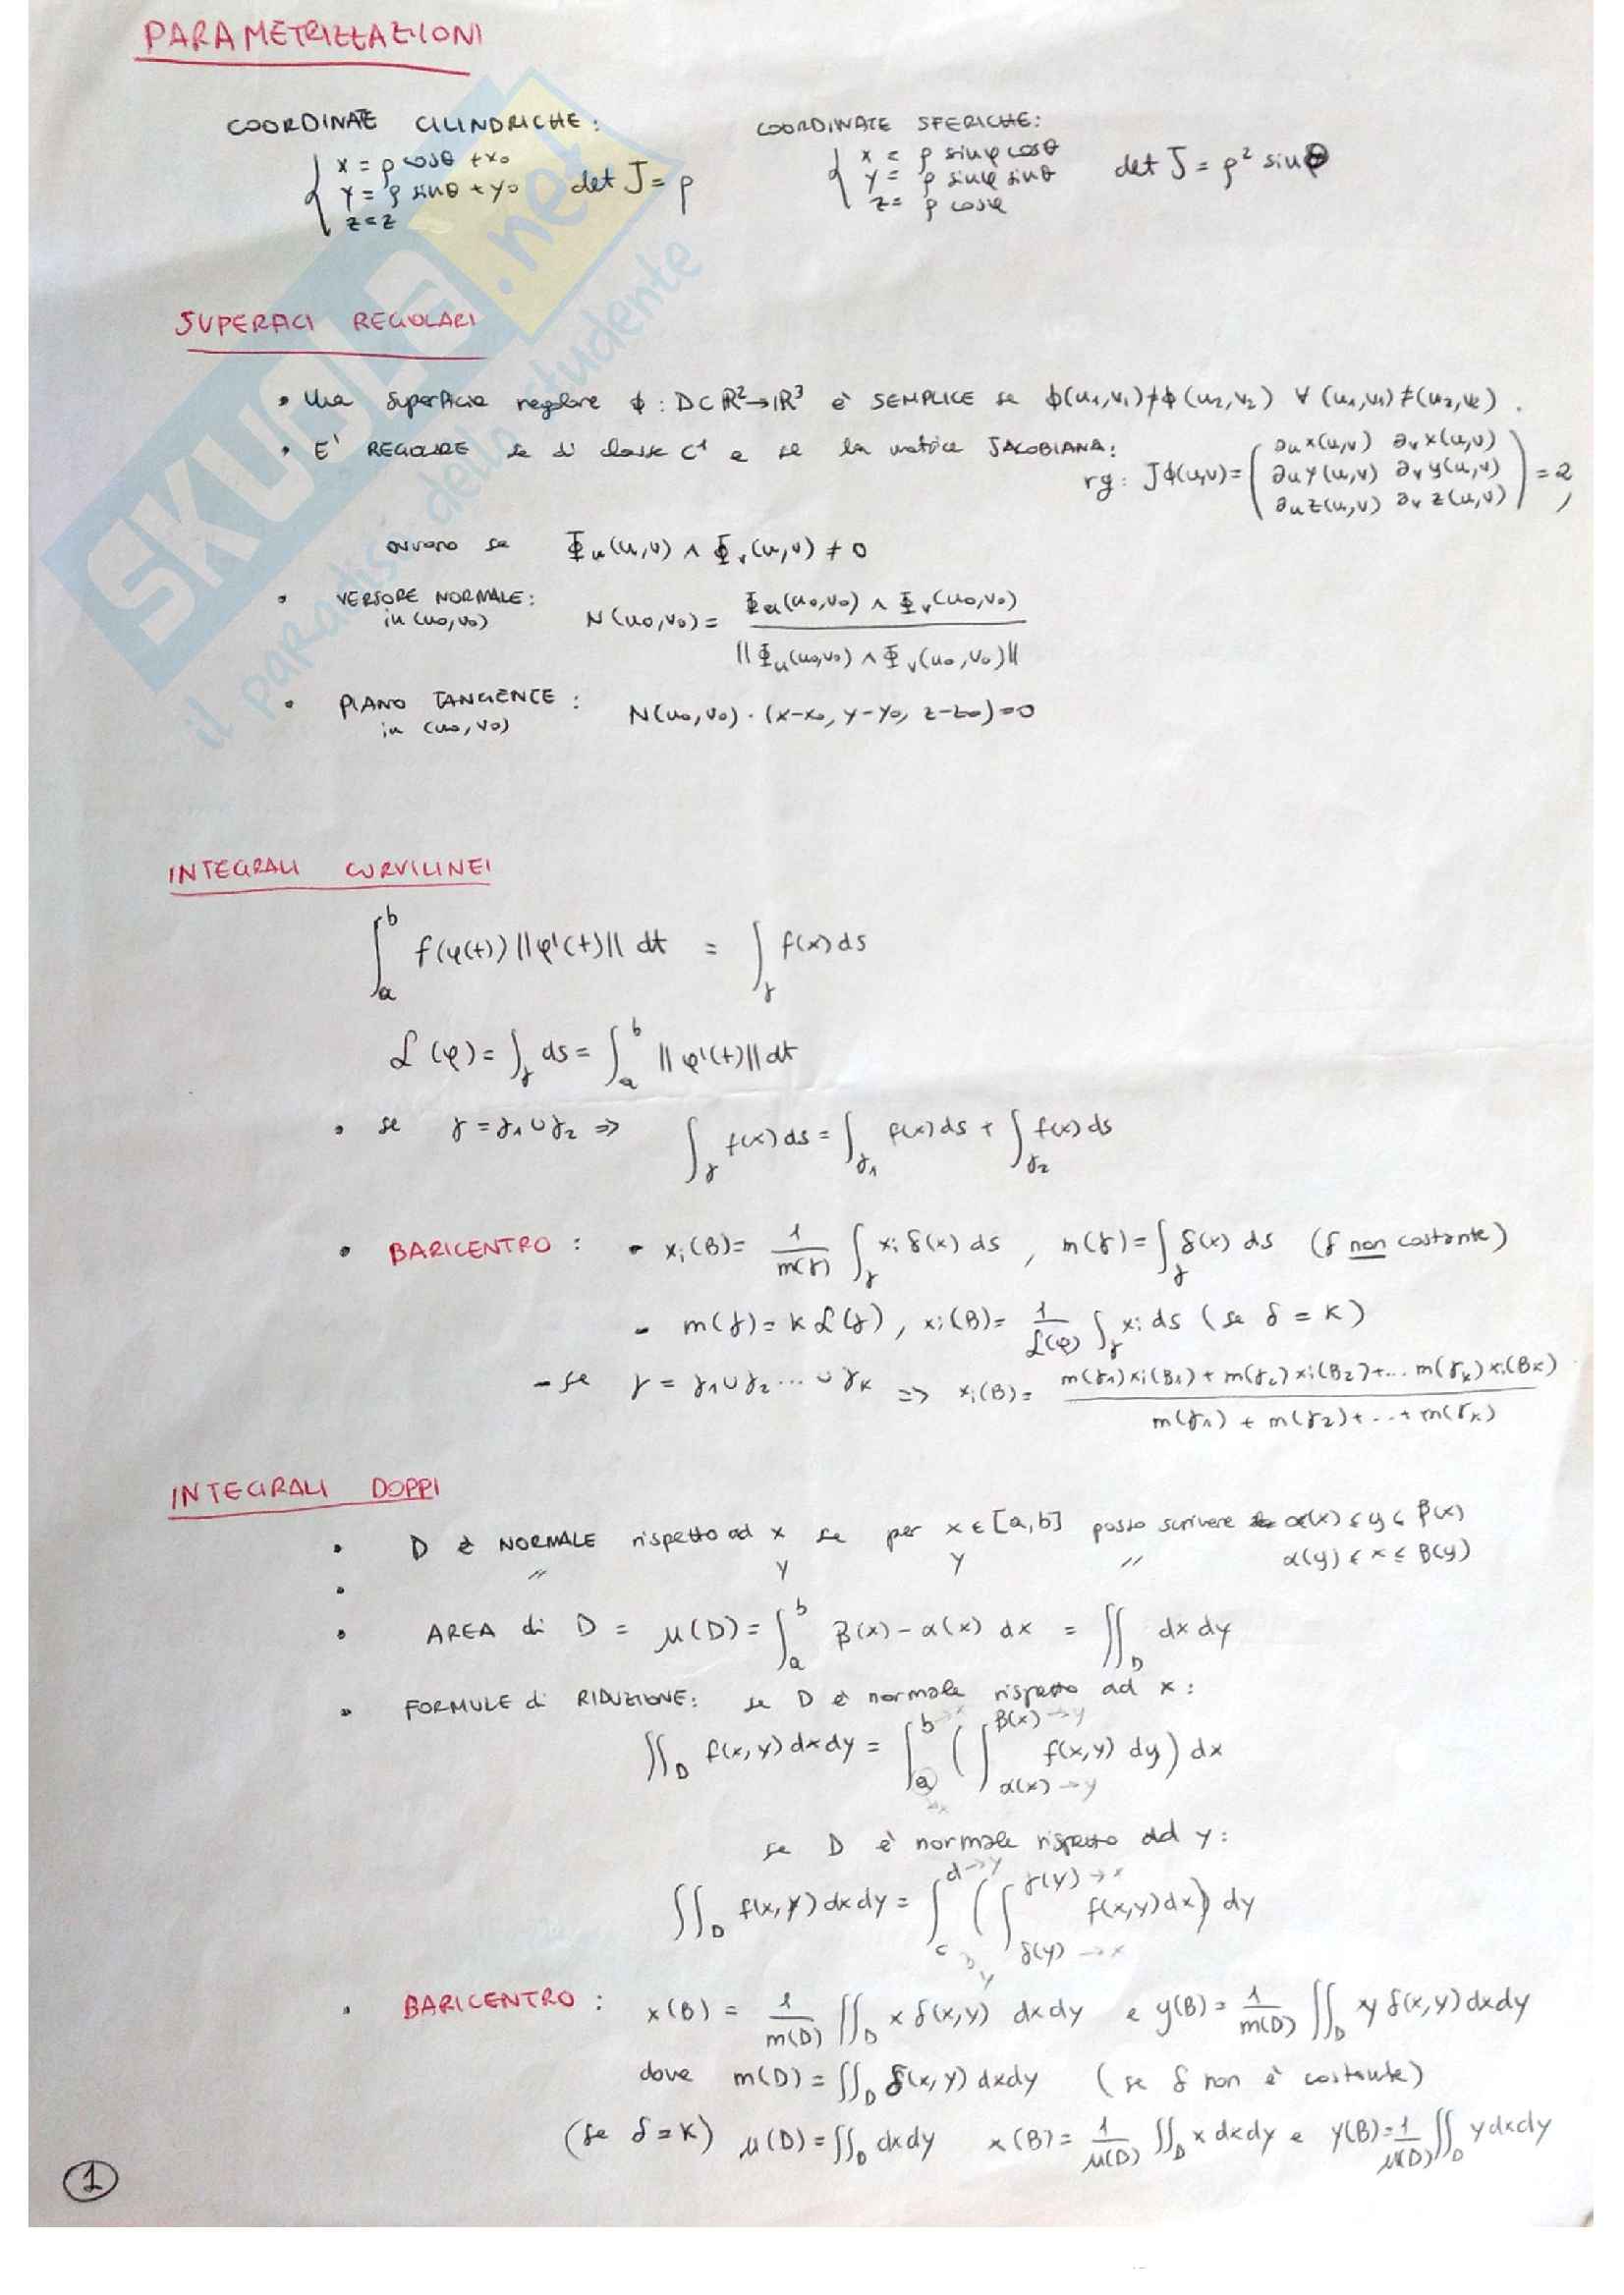 PARAMETRIZZAZIONI
COORDINATE CILINDRICHE:
x = ρ cosθ + x₀
y = ρ sinθ + y₀
z = z
det J = ρ
COORDINATE SFERICHE:
x = ρ sinφ cosθ
y = ρ sinφ sinθ
z = ρ cosφ
det J = ρ² sin
SUPERFICI REGOLARI
• Una superficie regolare ϕ : D⊂ℝ²→ℝ³ è SEMPLICE se ϕ(u₁,v₁)≠ϕ(u₂,v₂) ∀ (u₁,v₁)≠(u₂,v₂).
• E' REGOLARE se di classe C¹ e se la matrice JACOBIANA:
rg: Jϕ(u,v) = ( ∂u x(u,v) ∂v x(u,v)
∂u y(u,v) ∂v y(u,v)
∂u z(u,v) ∂v z(u,v) ) = 2,
ovvero se Φu(u,v) ∧ Φv(u,v) ≠ 0
• VERSORE NORMALE: in (u₀,v₀) N(u₀,v₀) = Φu(u₀,v₀) ∧ Φv(u₀,v₀) / ||Φu(u₀,v₀) ∧ Φv(u₀,v₀)||
• PIANO TANGENTE: in (u₀,v₀) N(u₀,v₀) · (x-x₀, y-y₀, z-z₀) = 0
INTEGRALI CURVILINEI
∫ₐᵇ f(φ(t)) ||φ'(t)|| dt = ∫γ f(x) ds
ℒ(φ) = ∫γ ds = ∫ₐᵇ ||φ'(t)|| dt
• se γ = γ₁∪γ₂ ⇒ ∫γ f(x) ds = ∫γ₁ f(x) ds + ∫γ₂ f(x) ds
• BARICENTRO: - xi(B) = 1/m(γ) ∫γ xi δ(x) ds, m(γ) = ∫γ δ(x) ds (δ non costante)
- m(γ) = K ℒ(γ), xi(B) = 1/ℒ(φ) ∫γ xi ds (se δ = K)
- se γ = γ₁∪γ₂...∪γK ⇒ xi(B) = m(γ₁)xi(B₁) + m(γ₂)xi(B₂)+... m(γK)xi(BK) / m(γ₁) + m(γ₂)+...+m(γK)
INTEGRALI DOPPI
• D è NORMALE rispetto ad x se per x ∈ [a,b] posso scrivere α(x) ≤ y ≤ β(x)
• " y y " α(y) ≤ x ≤ β(y)
• AREA di D = μ(D) = ∫ₐᵇ β(x) - α(x) dx = ∬D dx dy
• FORMULE di RIDUZIONE: se D è normale rispetto ad x:
∬D f(x,y) dx dy = ∫ₐᵇ→x (∫α(x)→y β(x)→y f(x,y) dy) dx
se D è normale rispetto ad y:
∬D f(x,y) dx dy = ∫c d→y (∫δ(y)→x γ(y)→x f(x,y) dx) dy
• BARICENTRO: x(B) = 1/m(D) ∬D x δ(x,y) dx dy e y(B) = 1/m(D) ∬D y δ(x,y) dx dy
dove m(D) = ∬D δ(x,y) dx dy (se δ non è costante)
(se δ = K) μ(D) = ∬D dx dy x(B) = 1/μ(D) ∬D x dx dy e y(B) = 1/μ(D) ∬D y dx dy
1
SKUOLA.net
il paradiso dello studente